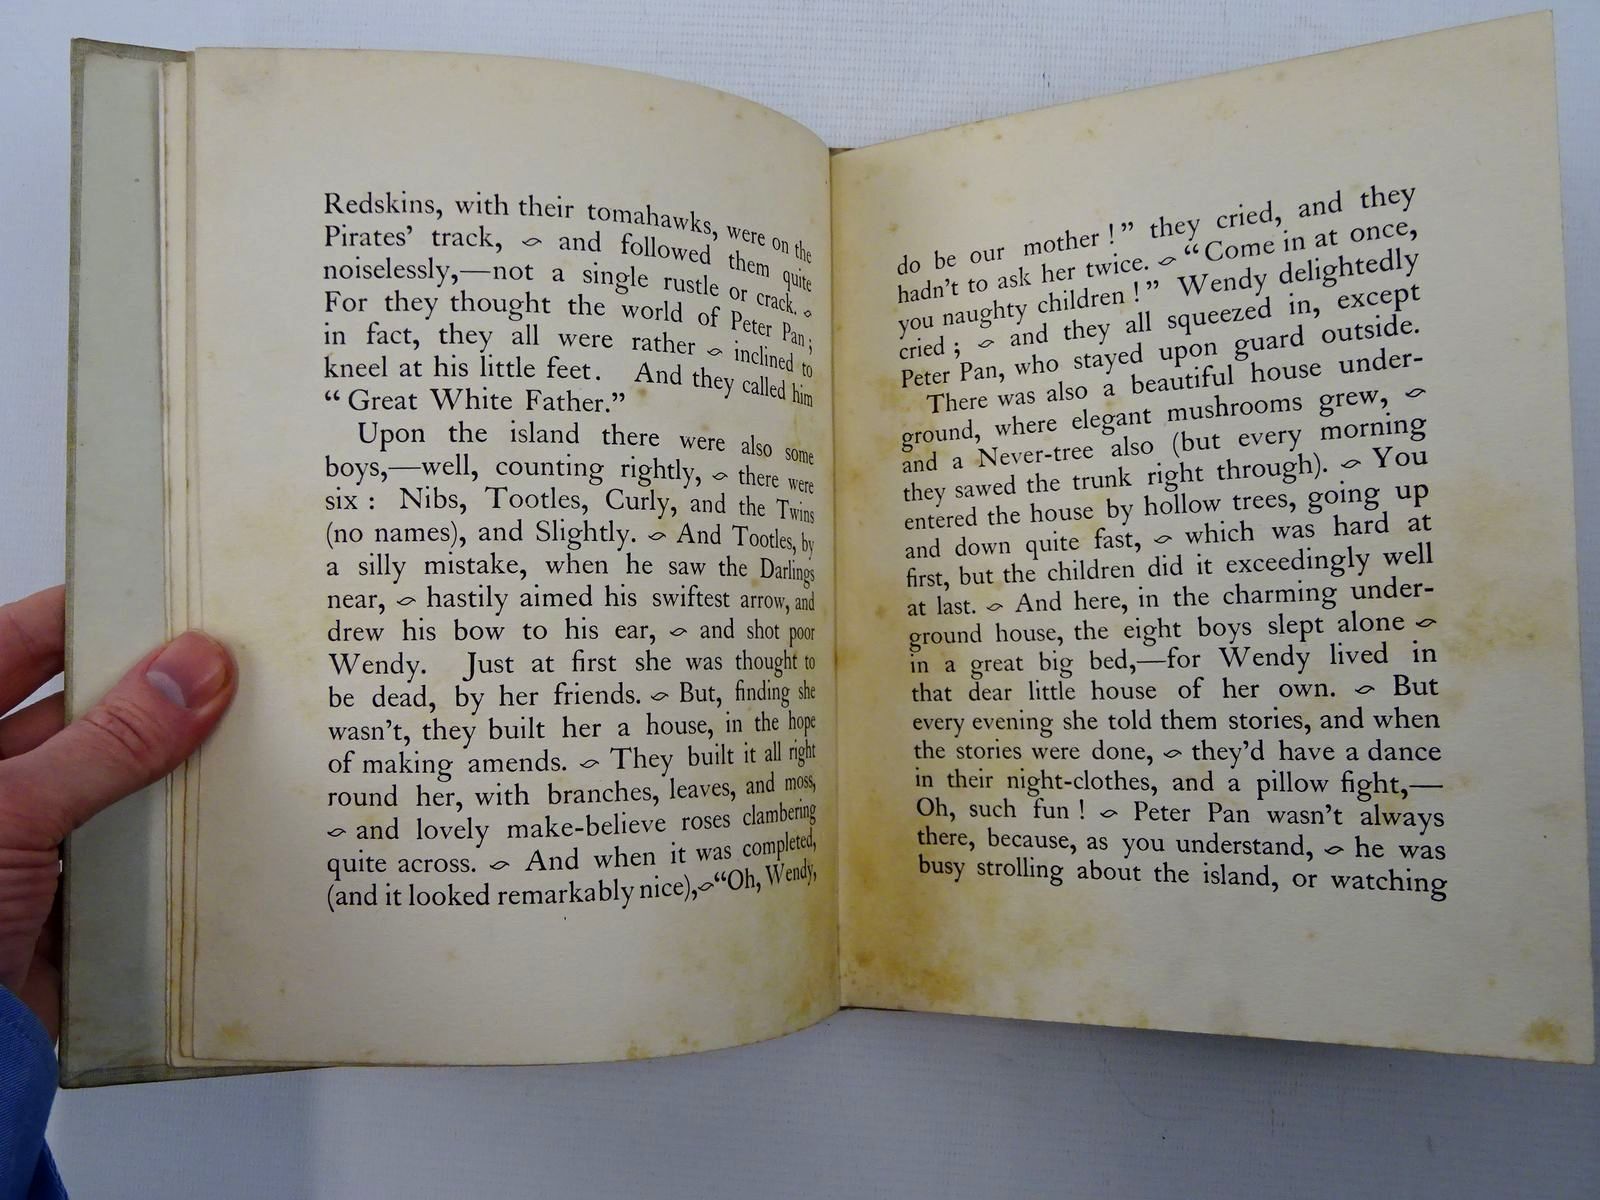 Redskins, with their tomahawks, were on the
Pirates’ track, and followed them quite
noiselessly,—not a single rustle or crack.
For they thought the world of Peter Pan;
in fact, they all were rather inclined to
kneel at his little feet. And they called him
“Great White Father.”
Upon the island there were also some
boys,—well, counting rightly, there were
six: Nibs, Tootles, Curly, and the Twins
(no names), and Slightly. And Tootles, by
a silly mistake, when he saw the Darlings
near, hastily aimed his swiftest arrow, and
drew his bow to his ear, and shot poor
Wendy. Just at first she was thought to
be dead, by her friends. But, finding she
wasn’t, they built her a house, in the hope
of making amends. They built it all right
round her, with branches, leaves, and moss,
and lovely make-believe roses clambering
quite across. And when it was completed,
(and it looked remarkably nice), “Oh, Wendy,
do be our mother!” they cried, and they
hadn’t to ask her twice. “Come in at once,
you naughty children!” Wendy delightedly
cried; and they all squeezed in, except
Peter Pan, who stayed upon guard outside.
There was also a beautiful house under-
ground, where elegant mushrooms grew,
and a Never-tree also (but every morning
they sawed the trunk right through). You
entered the house by hollow trees, going up
and down quite fast, which was hard at
first, but the children did it exceedingly well
at last. And here, in the charming under-
ground house, the eight boys slept alone
in a great big bed,—for Wendy lived in
that dear little house of her own. But
every evening she told them stories, and when
the stories were done, they’d have a dance
in their night-clothes, and a pillow fight,—
Oh, such fun! Peter Pan wasn’t always
there, because, as you understand, he was
busy strolling about the island, or watching